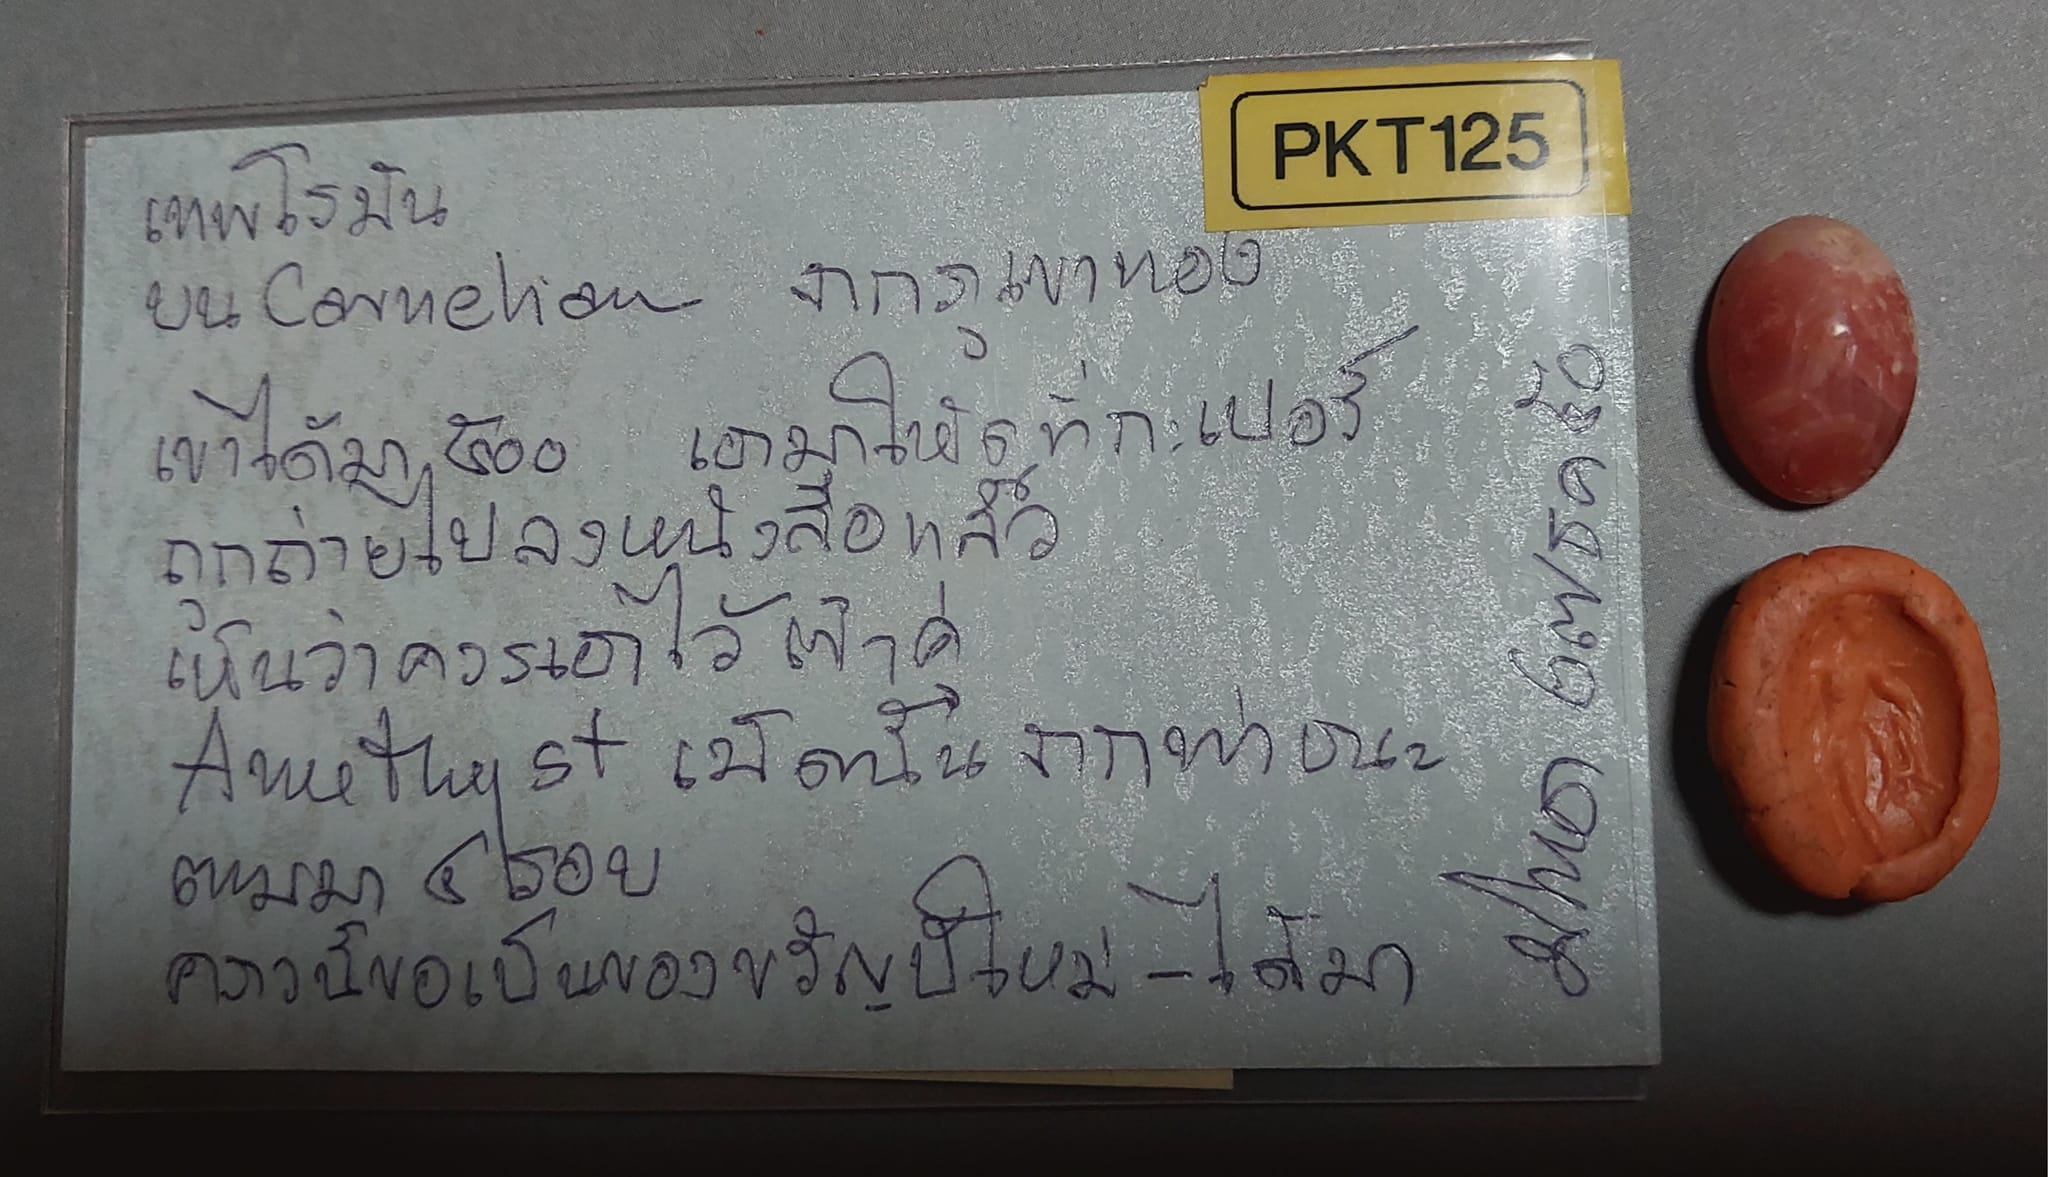 PKT125
เทพโรมัน
บน Carnelian จากภูเขาทอง
เขาได้มา ๕๐๐ เอามาให้ ที่กะเปอร์
ถูกถ่ายไปลงหนังสือแล้ว
เห็นว่าควรเอาไว้ เข้าคู่
Amethyst เม็ดนั้น จากท่าชนะ
ตามมา ๕ รอบ
คราวนี้ขอเป็นของขวัญปีใหม่ - ได้มา